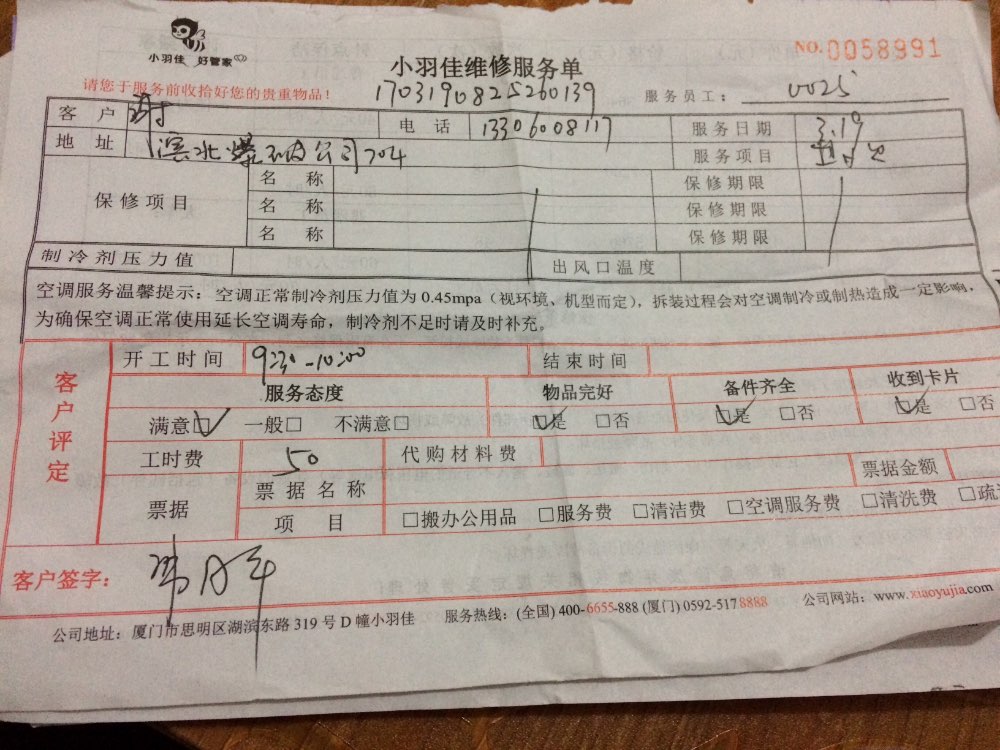 小羽佳 好管家
NO.0058991
小羽佳维修服务单
请您于服务前收拾好您的贵重物品！
1703190825260139
服务员工： 0025
客户 谢
电话 13306008117
服务日期 3.19
地址 公司704
服务项目
保修项目 名称 保修期限
名称 保修期限
名称 保修期限
制冷剂压力值 出风口温度
空调服务温馨提示：空调正常制冷剂压力值为 0.45mpa（视环境、机型而定），拆装过程会对空调制冷或制热造成一定影响，
为确保空调正常使用延长空调寿命，制冷剂不足时请及时补充。
客户评定
开工时间 9:30-10:00 结束时间
服务态度 物品完好 备件齐全 收到卡片
满意☑ 一般□ 不满意□ ☑是 □否 ☑是 □否 ☑是 □否
工时费 50 代购材料费
票据 票据名称 票据金额
项目 □搬办公用品 □服务费 □清洁费 □空调服务费 □清洗费 □疏
客户签字：
公司地址：厦门市思明区湖滨东路 319 号 D 幢小羽佳 服务热线：(全国) 400-6655-888 (厦门) 0592-5178888 公司网站：www.xiaoyujia.com